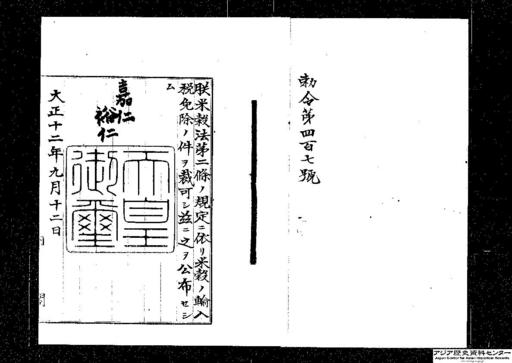 勅令第四百七號
朕米穀法第二條ノ規定ニ依リ米穀ノ輸入
税免除ノ件ヲ裁可シ茲ニ之ヲ公布セシ
ム
嘉仁
裕仁
天皇
御璽
大正十二年九月十二日
アジア歴史資料センター
Japan Center for Asian Historical Records